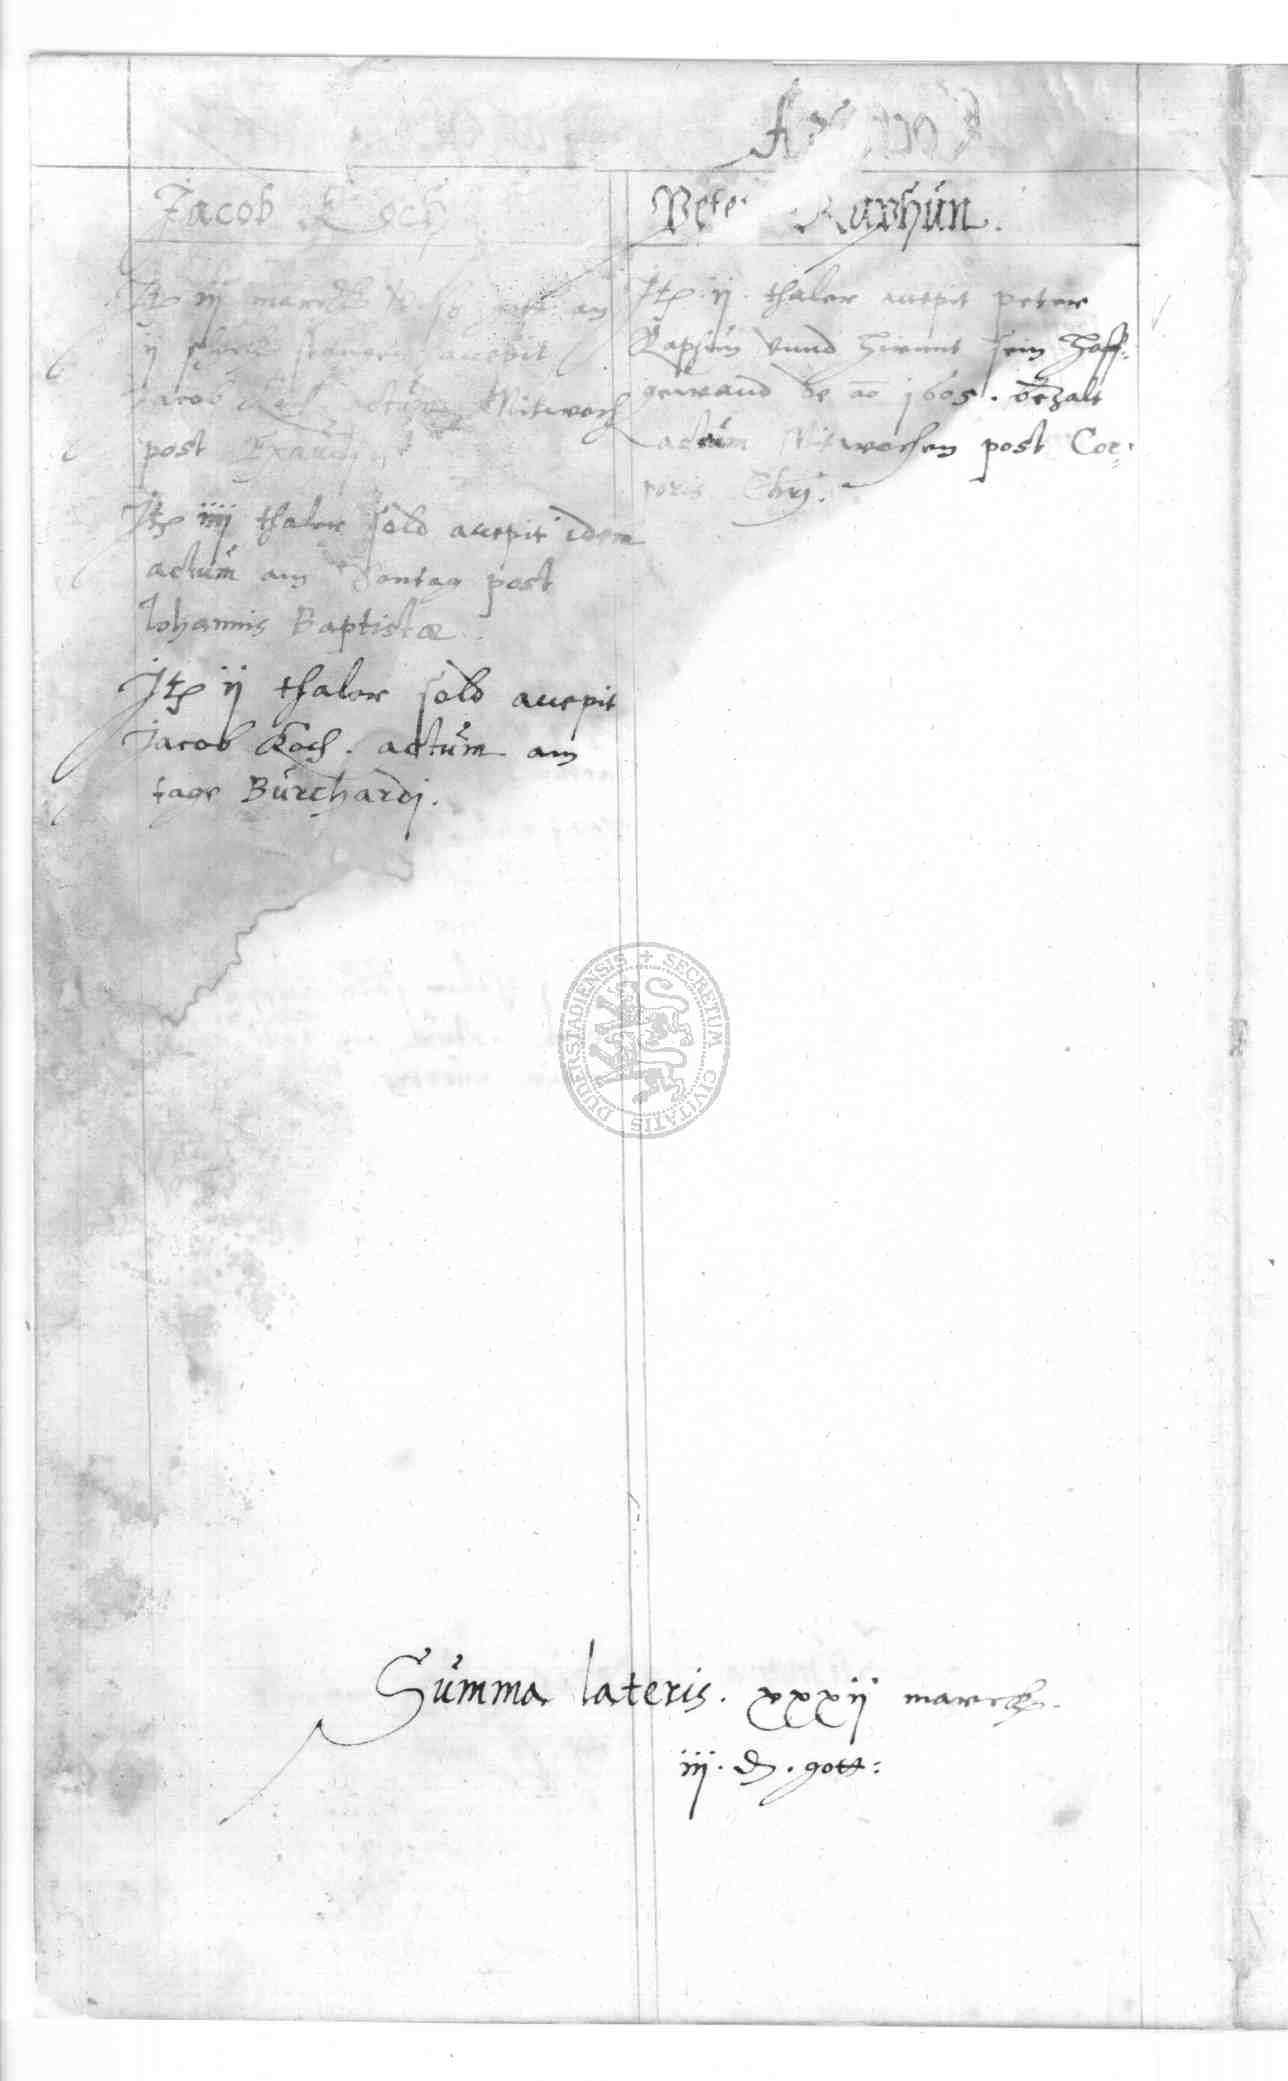 Jacob Koch
Jtem iij marck
ij accepit
Jacob Koch actum Mitwoch
post Exaudj
Jtem iiij thaler sold accepit idem
actum am Sontag post
Iohannis Baptistæ.
Jtem ij thaler sold accepit
Jacob Koch. actum am
tage Burchardj.
Peter Raphün.
Jtem ij thaler accepit Peter
Raphün vnnd hirmit sein Hoff=
gewand de ao 1605. bezalt
actum Mitwochen post Cor=
poris Chrj.
SECRETUM CIVITATIS DUDERSTADIENSIS
Summa lateris. xxxij marck.
iij. d. gott: